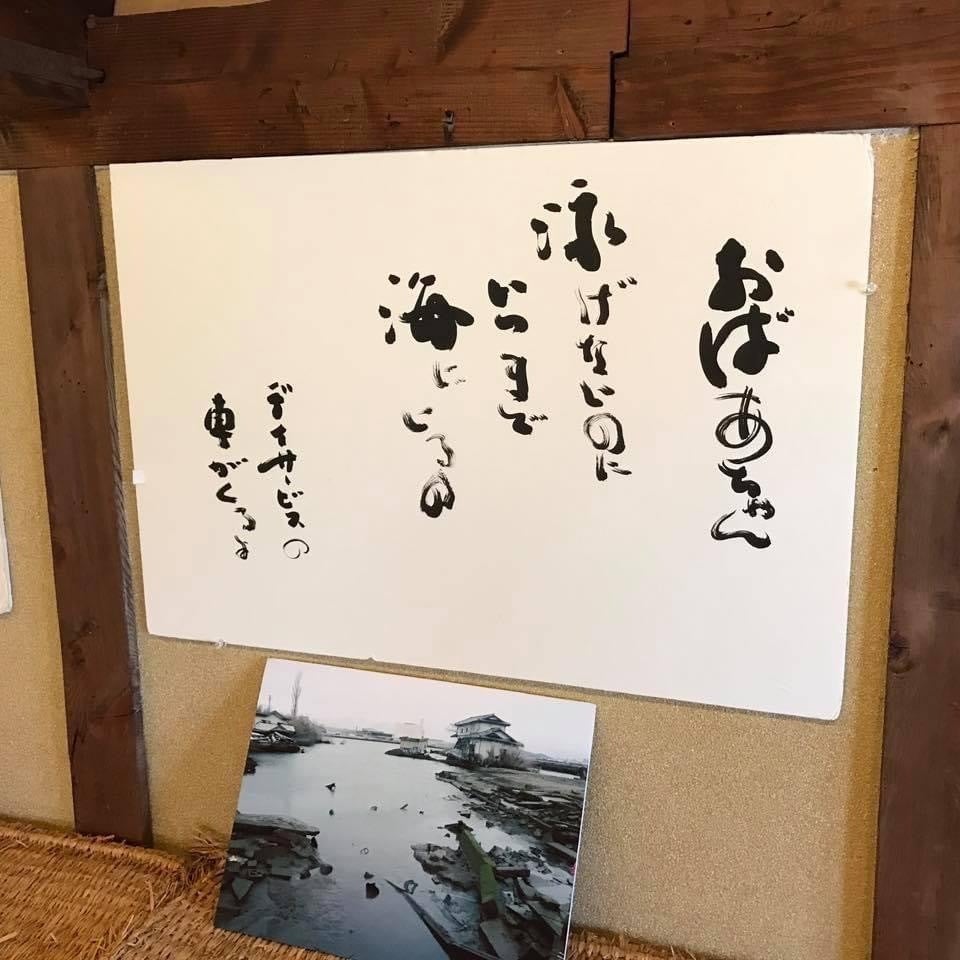 おばあちゃん
泳げないのに
いつまで
海にいるの
デイサービスの
車がくるよ